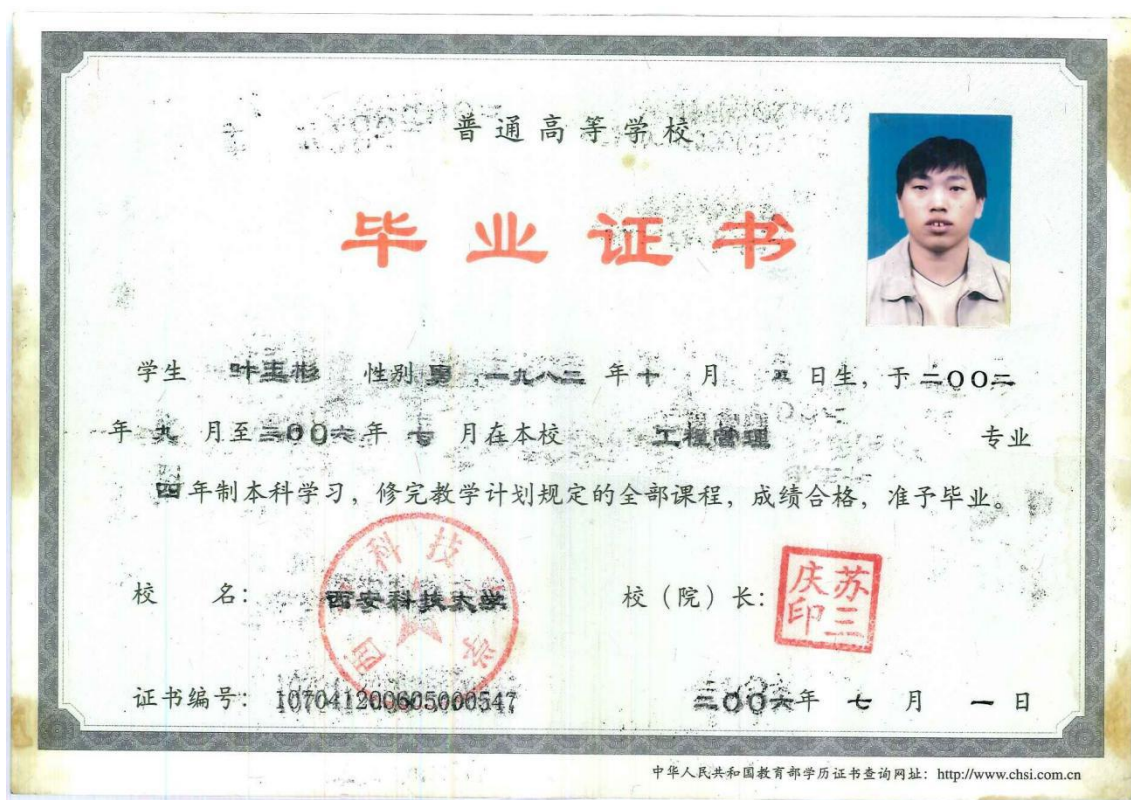 普通高等学校
毕业证书
学生 叶玉彬 性别 男，一九八二年十月五日生，于二〇〇二
年九月至二〇〇六年七月在本校 工程管理 专业
四年制本科学习，修完教学计划规定的全部课程，成绩合格，准予毕业。
校 名： 西安科技大学 校（院）长： 苏三庆印
证书编号： 107041200605000547 二〇〇六年 七 月 一 日
中华人民共和国教育部学历证书查询网址：http://www.chsi.com.cn